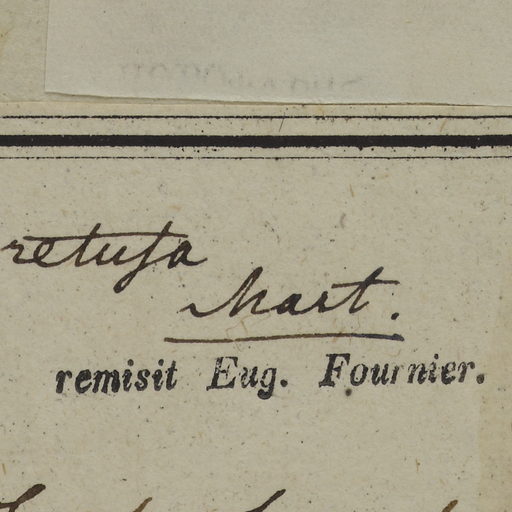 retusa
Mart.
remisit Eug. Fournier.